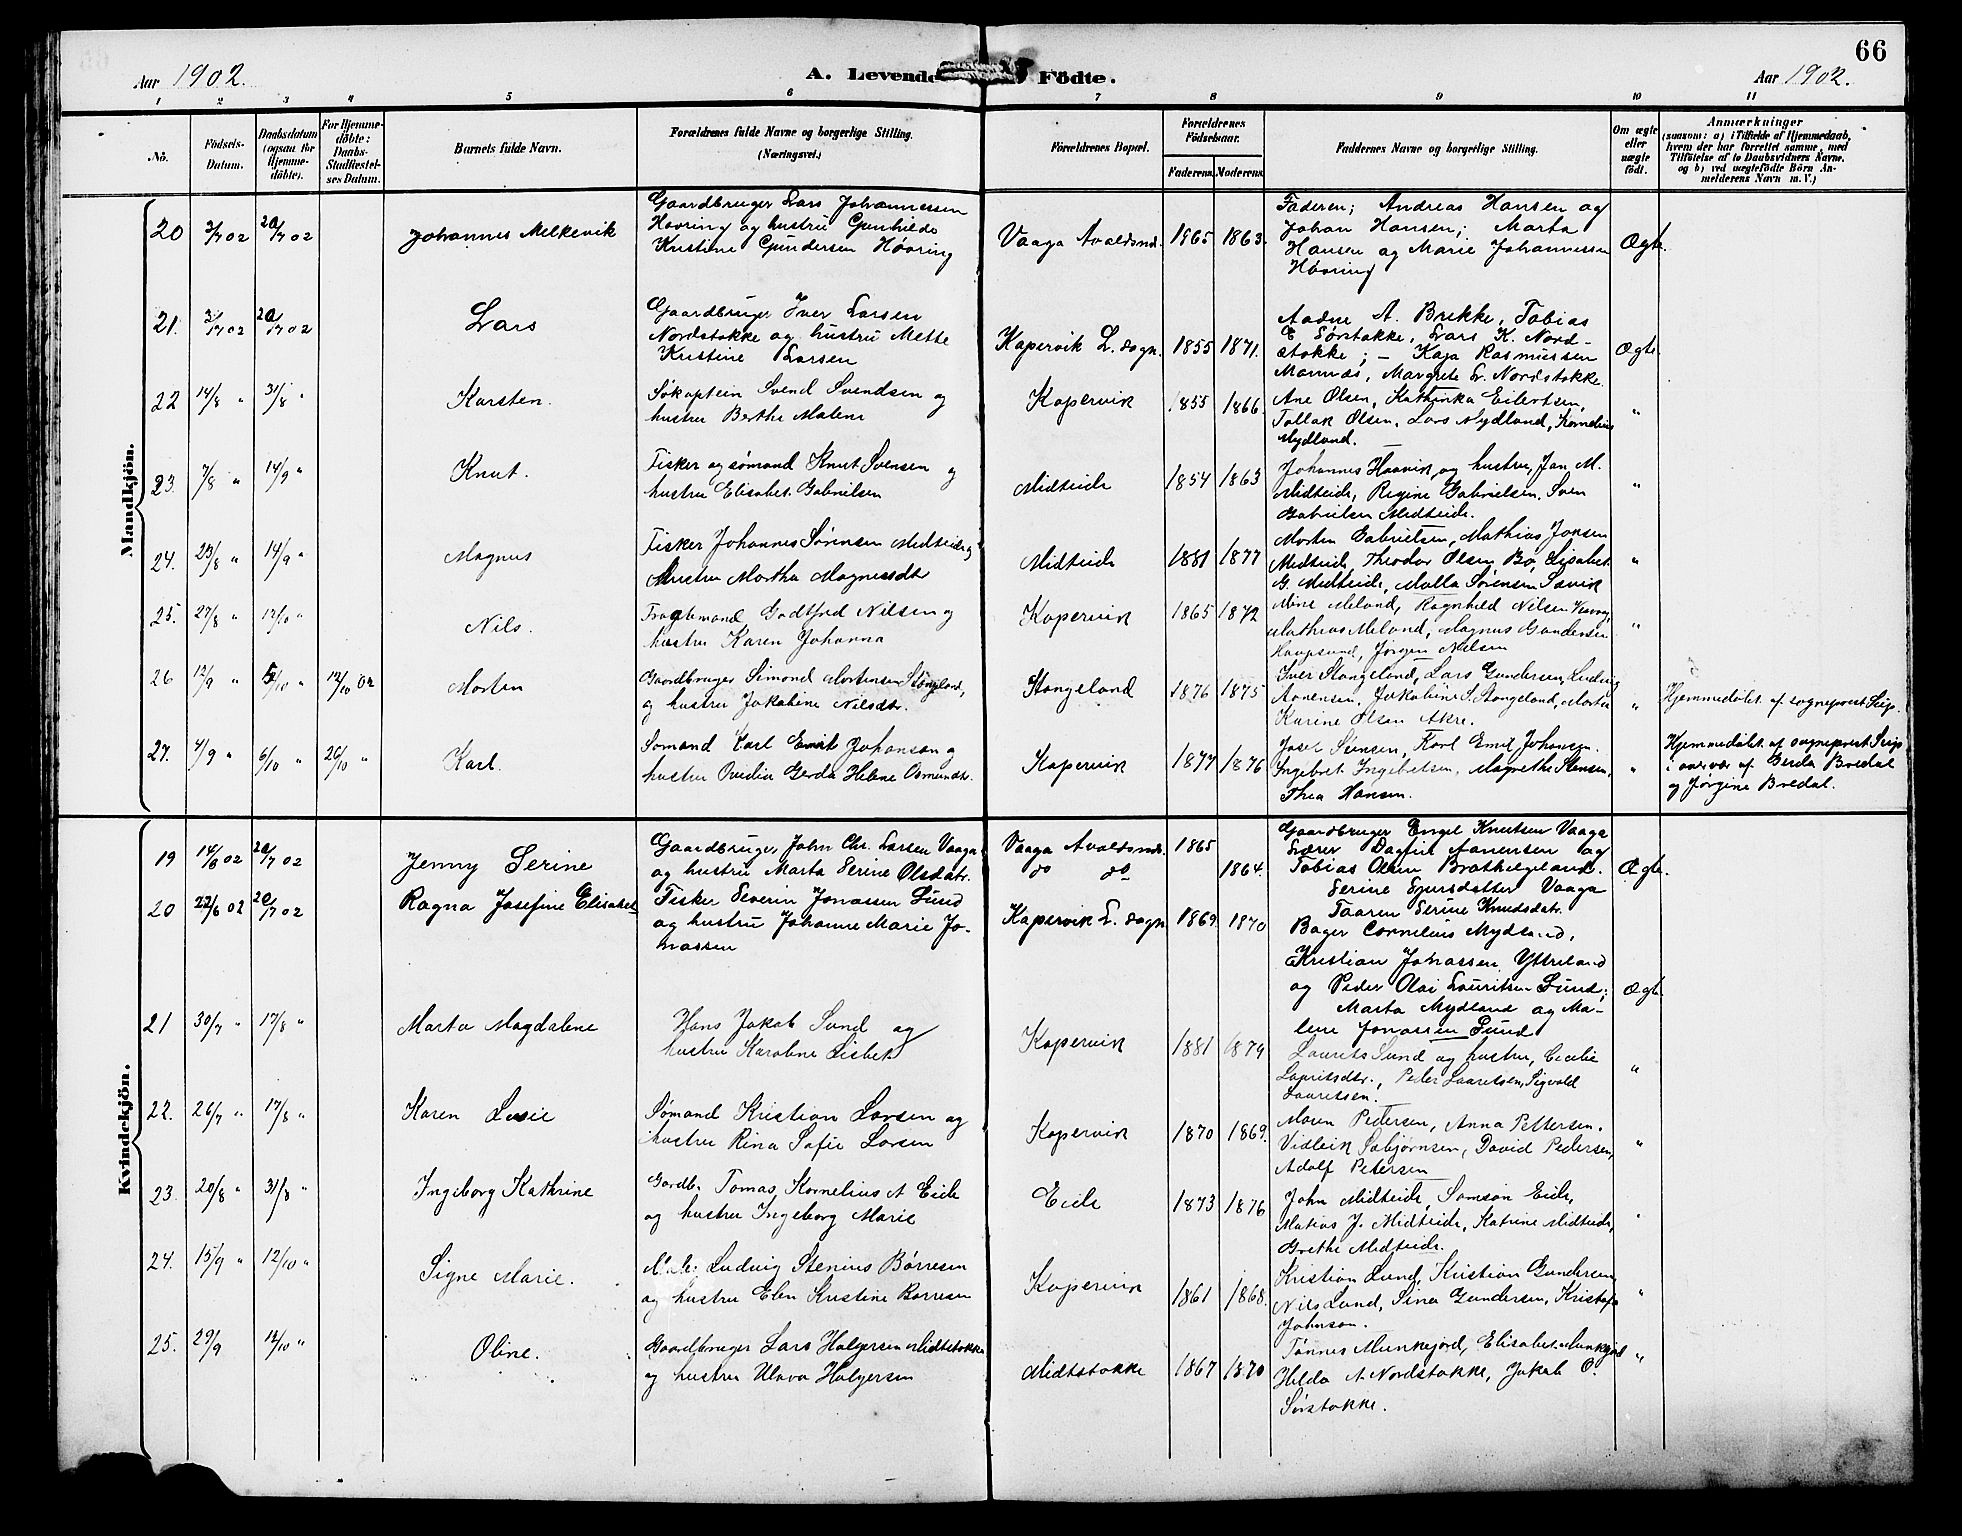 66
Aar 1902.
A. Levende Födte.
Aar 1902.
1 2 3 4 5 6 7 8 9 10 11
No.
Födsels-
Datum.
Daabsdatum
(ogsaa for
Hjemme-
döbte).
For Hjemme-
döbte:
Daabs-
Stadfæstel-
ses Datum.
Barnets fulde Navn.
Forældrenes fulde Navne og borgerlige Stilling.
(Næringsvei.)
Forældrenes Bopæl.
Forældrenes
Födselsaar.
Faderens. Moderens.
Faddernes Navne og borgerlige Stilling.
Om ægte
eller
uægte
födt.
Anmærkninger
(saasom: a) i Tilfælde af Hjemmedaab,
hvem der har forrettet samme, med
Tilföielse af to Daabsvidners Navne,
og b) ved uægtefödte Börn An-
melderens Navn m. V.)
Mandkjön.
20 3/7 02 20/7 02
Johannes Melkevik
Gaardbruger Lars Johannessen
Høvring og hustru Gunhilde
Kristine Gundersen Høvring
Vaaga Avaldsnd. 1865 1863.
Faderen; Andreas Hansen og
Johan Hansen; Marta
Hansen og Marie Johannessen
Høvring
Ægte.
21. 3/7 02 20/7 02
Lars
Gaardbruger Iver Larsen
Nordstokke og hustru Mette
Kristine Larsen
Kopervik L. sogn. 1855 1871.
Aadne A. Brekke, Tobias
E Sørstokke, Lars K. Nord-
stokke; – Kaja Rasmussen
Mannes, Margrete Lr. Nordstokke.
Ægte.
22 14/8 " 31/8 "
Karsten.
Søkaptein Svend Svendsen og
hustru Berthe Malene
Kopervik 1855 1866.
Ane Olsen, Kathinka Eilertsen,
Tollak Olsen, Lars Mydland, Kornelius
Mydland.
"
23. 7/8 " 14/9 "
Knut.
Fisker og sømand Knut Svensen og
hustru Elisabet Gabrielsen
Midteide 1854 1863
Johannes Haavik og hustru, Jan M.
Midteide, Regine Gabrielsen, Sven
Gabrielsen Midteide.
"
24. 23/8 " 14/9 "
Magnus
Fisker Johannes Sørensen Midteide og
hustru Martha Magnusdtr
Midteide 1881 1877
Morten Gabrielsen, Mathias Jonsen
Midteide, Theodor Olsen Bø, Elisabet
G. Midteide, Malla Sørensen Sævik
"
25. 27/8 " 12/10 "
Nils.
Fragtemand Godtfred Nilsen og
hustru Karen Johanna
Kopervik 1865 1872
Mine Meland, Ragnhild Nilsen
Mathias Meland, Magnus Gundersen
Haugsund, Jørgen Nilsen
"
26 12/9 " 5/10 " 12/10 02
Morten
Gaardbruger Simond Mortensen Stangeland,
og hustru Jakobine Nilsdtr.
Stangeland 1876 1875
Iver Stangeland, Lars Gundersen, Ludvig
Aanensen, Jakobine S. Stangeland, Marta
Karine Olsen Akre.
"
Hjemmedøbt af sogneprest Seip.
27. 4/9 " 6/10 " 26/10 "
Karl.
Sømand Karl Emil Johanson og
hustru Ovidia Gerda Helene Osmundtr.
Kopervik 1877 1876
Josef Stensen, Karl Emil Johansen.
Ingebret Ingebretsen, Magrethe Stensen,
Thea Hansen.
"
Hjemmedøbt af sogneprest Seip
i overvær af Gerda Bredal
og Jørgine Bredal.
Kvindekjön.
19 14/6 02 20/7 02
Jenny Serine
Gaardbruger, John Chr. Larsen Vaaga
og hustru Marta Serine Olsdatr.
Vaaga Avaldsnd. 1865
do do 1864.
Gaardbruger Engel Knutsen Vaaga
Lærer Dagfin Aanensen og
Tobias Olsen Brathelgeland.
Serine Sjursdatter Vaaga
Taaren Serine Knudsdatr.
Ægte.
20 22/6 02 20/7 02
Ragna Josefine Elisabet
Fisker Severin Jonassen Lund
og hustru Johanne Marie Jo-
nassen
Kopervik L. sogn 1869. 1870
Bager Cornelius Mydland,
Kristian Jonassen Yttreland
og Peder Olai Lauritsen Lund;
Marta Mydland og Ma-
lene Jonassen Lund
Ægte.
21 30/7 " 17/8 "
Marta Magdalene
Hans Jakob Sund og
hustru Karoline Lisbet
Kopervik 1881 1879
Laurits Sund og hustru, Cecilie
Lauritsdtr., Peder Lauritsen, Sigvald
Lauritsen.
"
22. 26/7 " 17/8 "
Karen Lusie
Sømand Kristian Larsen og
hustru Rina Sofie Larsen
Kopervik 1870 1869.
Maren Pedersen, Anna Pettersen.
Vidleik Sæbjørnsen, David Pedersen,
Adolf Petersen
"
23. 20/8 " 31/8 "
Ingeborg Kathrine
Gardb. Tomas Kornelius A Eide
og hustru Ingeborg Marie
Eide 1873 1876
John Midteide, Samson Eide,
Matias J. Midteide, Katrine Midteide,
Grethe Midteide.
"
24. 15/9 " 12/10 "
Signe Marie.
Ludvig Stenius Børresen
og hustru Elen Kristine Børresen
Kopervik 1861 1868.
Kristian Lund, Kristian Gundersen,
Nils Lund, Sina Gundersen, Kristofa
Johnson.
"
25. 29/9 12/10 "
Oline.
Gaardbruger Lars Holgersen Midtstokke
og hustru Olava Holgersen
Midtstokke 1867 1870
Tønnes Munkejord, Elisabet Munkejord
Helda A Nordstokke, Jakob O.
Sørstokke.
"